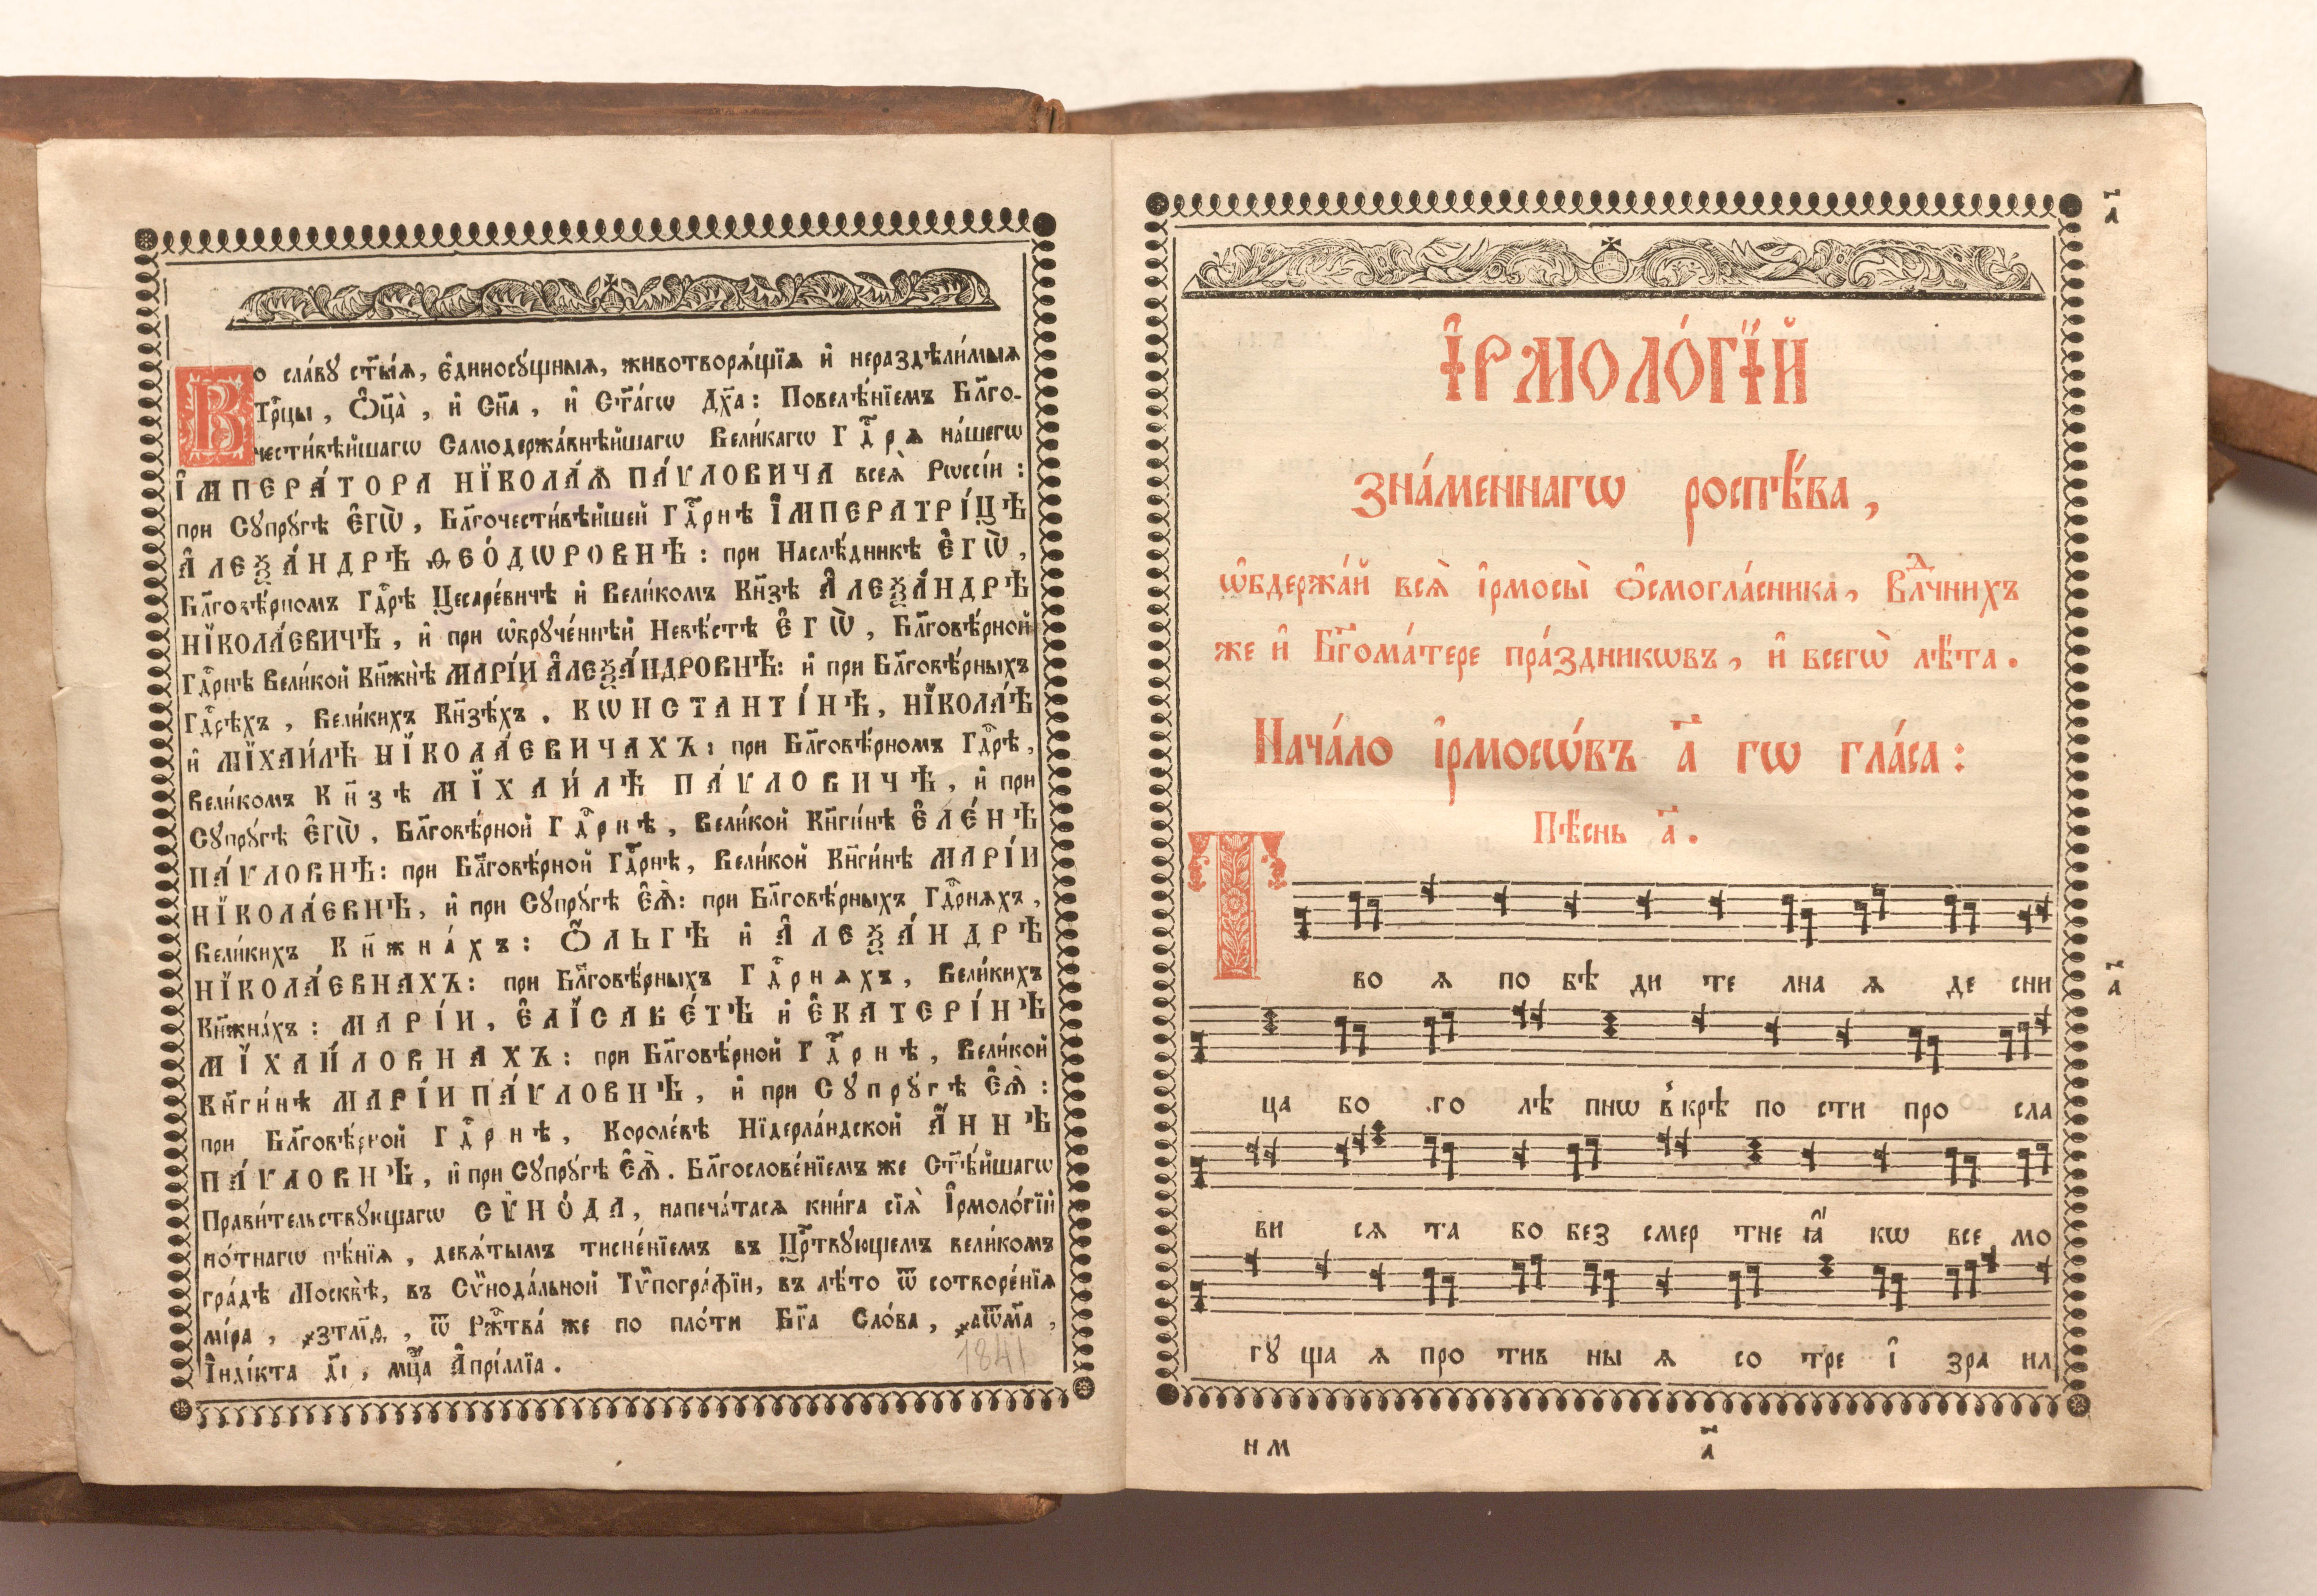 Во сла́вꙋ ст҃ы́ѧ, є҆диносꙋ́щныѧ, животворѧ́щїѧ и҆ нераздѣли́мыѧ
Трⷪ҇цы, Ѻ҆ц҃а̀, и҆ Сн҃а, и҆ Ст҃а́гѡ Дх҃а: Повелѣ́нїемъ Бл҃го-
чести́вѣйшагѡ Самодержа́внѣйшагѡ Вели́кагѡ Гдⷭ҇рѧ на́шегѡ
І҆МПЕРА́ТОРА НЇКОЛА́Ѧ ПА́ѴЛОВИЧА всеѧ̀ Рѡссі́и :
при Сꙋпрꙋ́гѣ Є҆гѡ̀, Бл҃гочести́вѣйшей Гдⷭ҇рнѣ І҆МПЕРАТРІ́ЦѢ
А҆ЛЕѮА́НДРѢ ѲЕО́ДѠРОВНѢ : при Наслѣ́дникѣ Є҆гѡ̀,
Бл҃говѣ́рномъ Гдⷭ҇рѣ Цесаре́вичѣ и҆ Вели́комъ Кн҃зѣ А҆ЛЕѮА́НДРѢ
НЇКОЛА́ЕВИЧѢ, и҆ при ѡ҆брꙋче́ннѣй Невѣ́стѣ Є҆гѡ̀, Бл҃говѣ́рной
Гдⷭ҇рнѣ Вели́кой Кн҃жнѣ̀ МАРІ́И А҆ЛЕѮА́НДРОВНѢ: и҆ при Бл҃говѣ́рныхъ
Гдⷭ҇рѣхъ, Вели́кихъ Кн҃зѣ́хъ, КѠНСТАНТІ́НѢ, НЇКОЛА́Ѣ
и҆ МЇХАИ́ЛѢ НЇКОЛА́ЕВИЧАХЪ: при Бл҃говѣ́рномъ Гдⷭ҇рѣ,
Вели́комъ Кн҃зѣ МЇХАИ́ЛѢ ПА́ѴЛОВИЧѢ, и҆ при
Сꙋпрꙋ́гѣ Є҆гѡ̀, Бл҃говѣ́рной Гдⷭ҇рнѣ, Вели́кой Кн҃ги́нѣ Є҆ЛЕ́НѢ
ПА́ѴЛОВНѢ: при Бл҃говѣ́рной Гдⷭ҇рнѣ, Вели́кой Кн҃ги́нѣ МАРІ́И
НЇКОЛА́ЕВНѢ, и҆ при Сꙋпрꙋ́гѣ Є҆ѧ̀: при Бл҃говѣ́рныхъ Гдⷭ҇рнѧхъ,
Вели́кихъ Кн҃жна́хъ: Ѻ҆́ЛЬГѢ и҆ А҆ЛЕѮА́НДРѢ
НЇКОЛА́ЕВНАХЪ: при Бл҃говѣ́рныхъ Гдⷭ҇рнѧхъ, Вели́кихъ
Кн҃жна́хъ: МАРІ́И, Є҆ЛЇСАВЕ́ТѢ и҆ Є҆КАТЕРІ́НѢ
МЇХА́ЙЛОВНАХЪ: при Бл҃говѣ́рной Гдⷭ҇рнѣ, Вели́кой
Кн҃ги́нѣ МАРІ́И ПА́ѴЛОВНѢ, и҆ при Сꙋпрꙋ́гѣ Є҆ѧ̀:
при Бл҃говѣ́рной Гдⷭ҇рнѣ, Короле́вѣ Нїдерла́ндской А҆́ННѢ
ПА́ѴЛОВНѢ, и҆ при Сꙋпрꙋ́гѣ Є҆ѧ̀. Бл҃гослове́нїемъ же Ст҃ѣ́йшагѡ
Прави́тельствꙋющагѡ СѴ̈НО́ДА, напеча́тасѧ кни́га сїѧ̀ І҆рмоло́гїй
но́тнагѡ пѣ́нїѧ, девѧ́тымъ тисне́нїемъ въ Црⷭ҇твꙋющемъ вели́комъ
гра́дѣ Москвѣ̀, въ Сѵ̈нода́льной Тѵ̈погра́фїи, въ лѣ́то ѿ сотворе́нїѧ
мі́ра, ҂зтм҃ѳ, ѿ Ржⷭ҇тва́ же по пло́ти Бг҃а Сло́ва, ҂аѿм҃а,
І҆ндікта д҃і, мцⷭ҇а А҆прі́ллїа.
1841
І҆РМОЛО́ГЇЙ
зна́меннагѡ роспѣ́ва,
ѡ҆бдержа́й всѧ̀ і҆рмосы̀ ѻ҆смогла́сника, Влⷣчнихъ
же и҆ Бг҃ома́тере пра́здникѡвъ, и҆ всегѡ̀ лѣ́та.
Нача́ло і҆рмосѡ́въ а҃ гѡ гла́са:
Пѣ́снь а҃.
а҃
Т
во ѧ по бѣ ди те лна ѧ де сни
а҃
ца бо го лѣ пнѡ в̾ крѣ по сти про сла
ви сѧ та бо без смер тне ꙗ҆́ кѡ все мо
гꙋ ща ѧ про тив ны ѧ со тре і҆ зра ил
н м
а҃